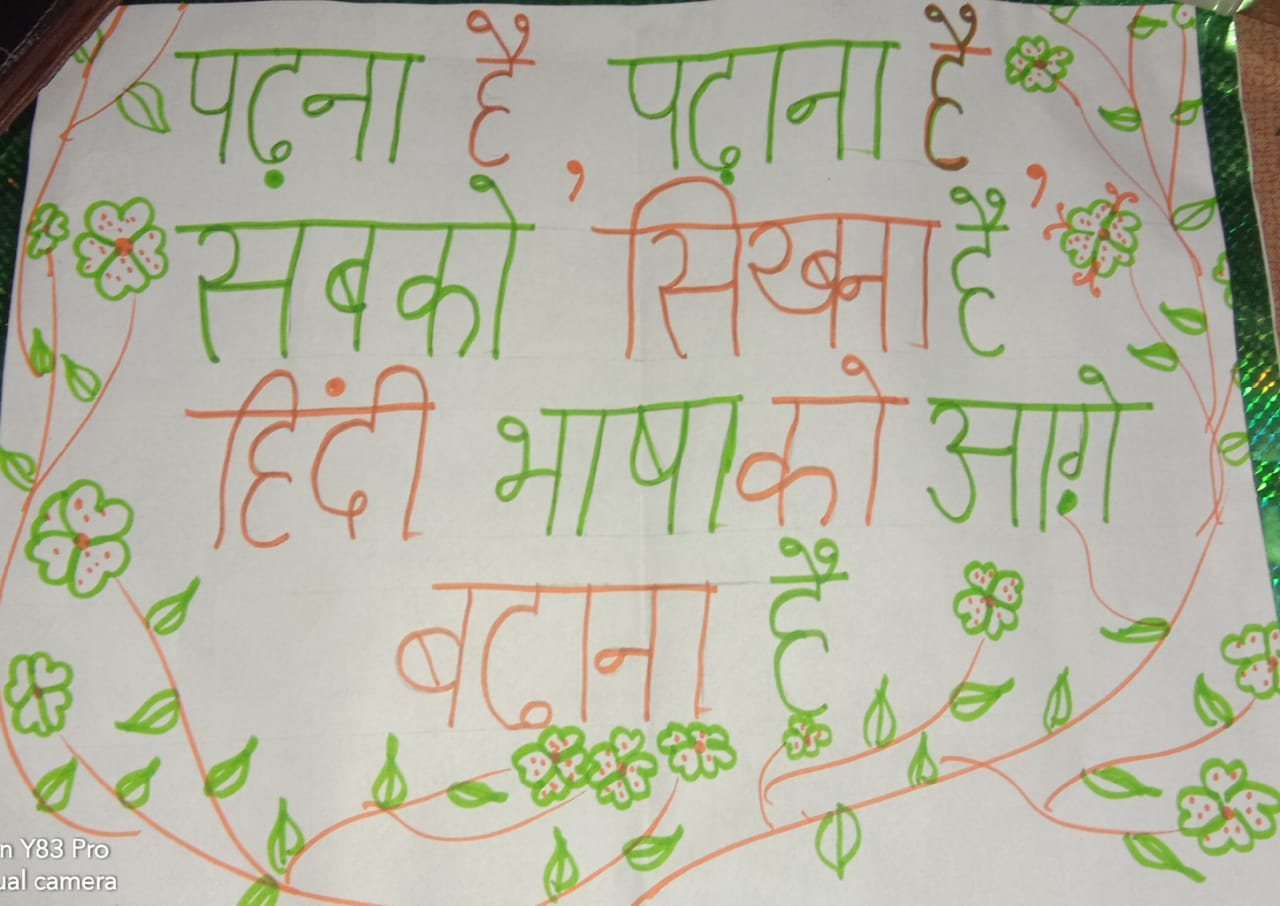 पढ़ना है, पढ़ाना है,
सबको सिखना है
हिंदी भाषा को आग़े
बढाना है
n Y83 Pro
ual camera